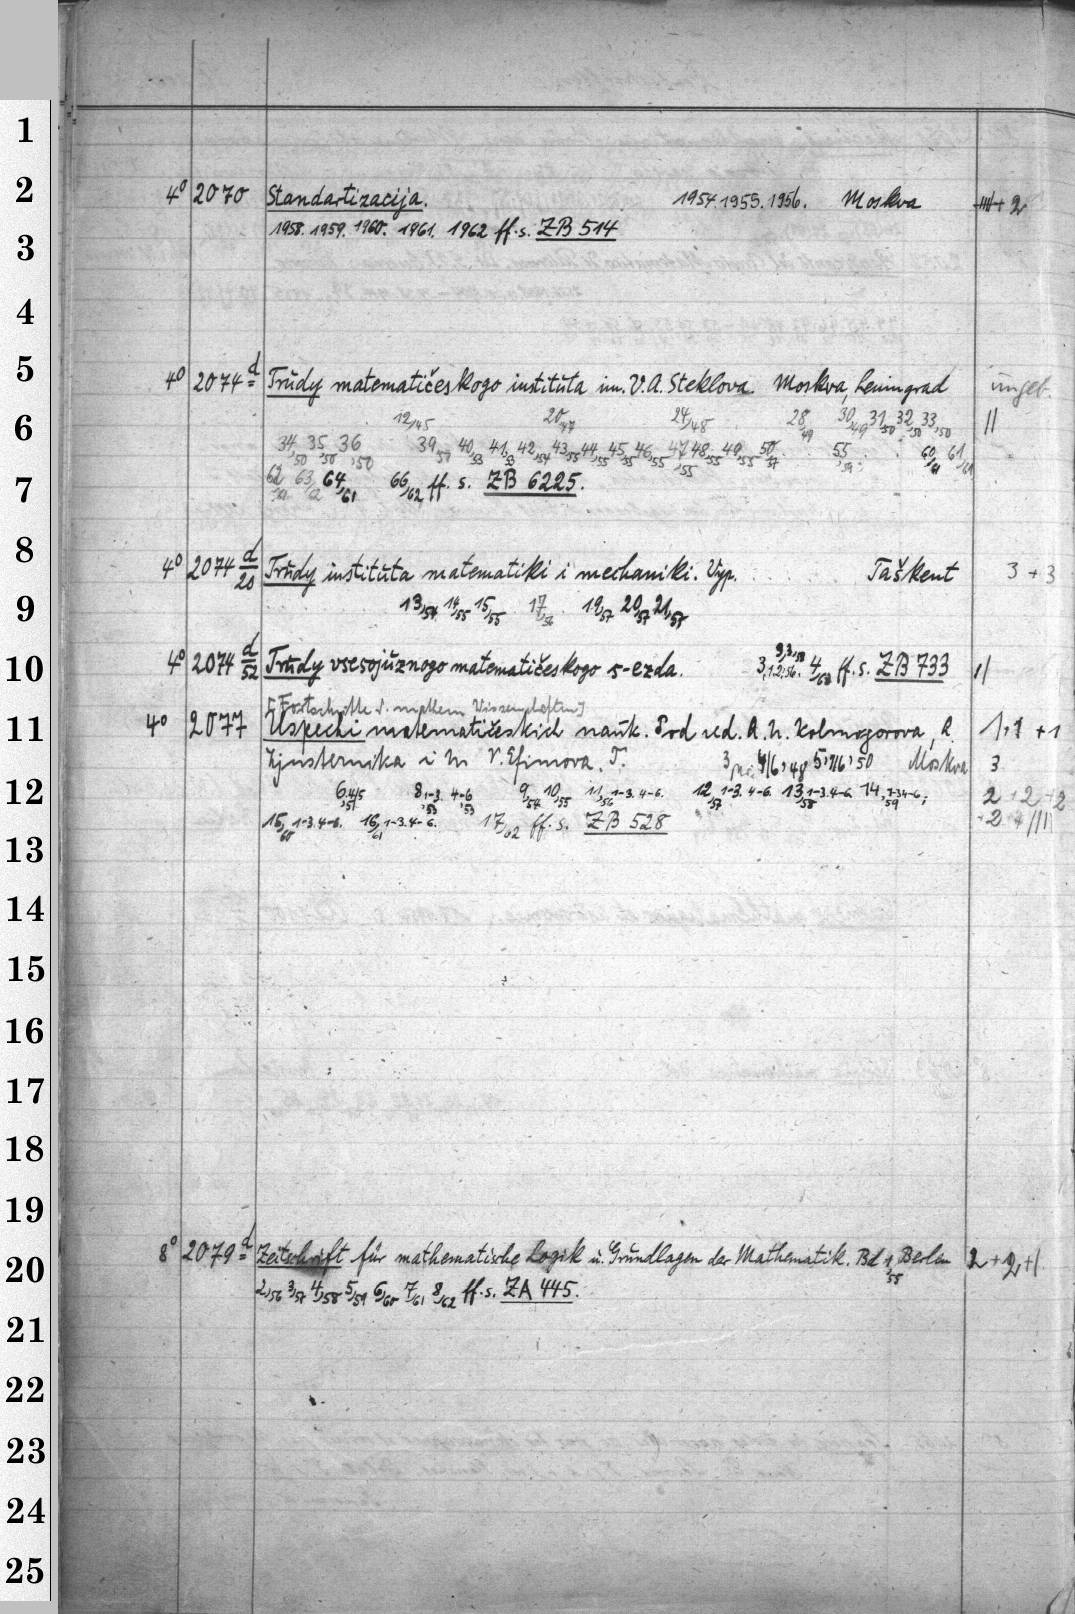 1
2
4° 2070 Standartizacija. 1954.1955.1956. Moskva + 2
1958. 1959. 1960. 1961. 1962 ff. s. ZB 514
3
4
5
4° 2074 d Trudy matematičeskogo instituta im. V.A. Steklova Moskva, Leningrad ungeb.
6
12,/45 20,/47 24,/48 28,/49 30,/49 31,/50 32,/50 33,/50 ||
34,/50 35,/50 36,/50 39, 40,/53 41,/53 42,/54 43,/55 44,/55 45,/55 46,/55 47,/55 48,/55 49,/55 50,/57 55,/59 60,/61 61,/61
7
62 63,/62 64,/61 66,/62 ff. s. ZB 6225.
8
4° 2074 d/20 Trudy instituta matematiki i mechaniki. Vyp. Taškent 3 + 3
9
13,/54 14,/55 15,/55 17,/56 19,/57 20,/57 21,/57
10
4° 2074 d/52 Trudy vsesojuznogo matematičeskogo s-ezda. 3,1.2:56. 4,/60 ff. s. ZB 733 ||
[Fortschritte d. mathem. Wissenschaften]
11
4° 2077 Uspechi matematičeskich nauk. Pod red. A. N. Kolmogorova, + 1
Ljusternika i N. V. Efimova. T. 3 4/6,48 5, 50 Moskva 3
12
6,4/5,51 8,1-3. 4-6,53 9,/54 10,/55 11,/56 1-3. 4-6. 12,/57 1-3. 4-6. 13,/58 1-3. 4-6. 14,/59 1-3 4-6; 2 + 2 + 2
15,/60 1-3. 4-6. 16,/61 1-3. 4-6. 17,/62 ff. s. ZB 528 + 2 + ||||
13
14
15
16
17
18
19
20
8° 2079 d Zeitschrift für mathematische Logik u. Grundlagen der Mathematik. Bd 1,/55 Berlin 2 + 2 + |
2,/56 3,/57 4,/58 5,/59 6,/60 7,/61 8,/62 ff. s. ZA 445.
21
22
23
24
25